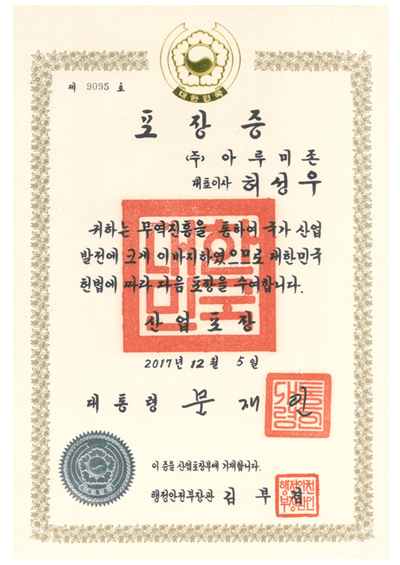 대한민국
제 9095 호
포장증
(주) 아루미존
대표이사 허성우
귀하는 무역진흥을 통하여 국가 산업
발전에 크게 이바지하였으므로 대한민국
헌법에 따라 다음 포장을 수여합니다.
산업포장
2017년 12월 5일
대통령 문재인
이 증을 산업포장부에 기재합니다.
행정안전부장관 김부겸